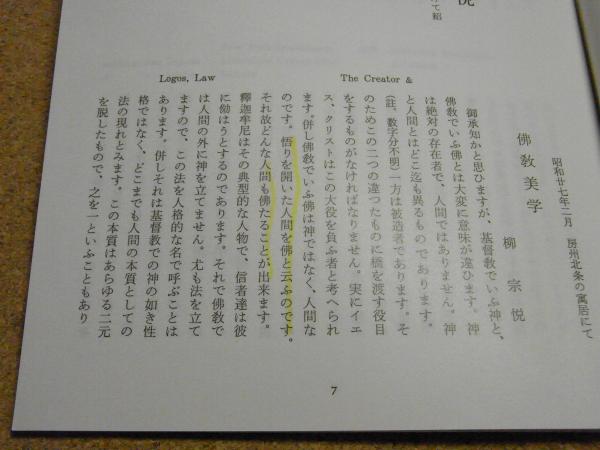 けて紹
悦
昭和廿七年二月　房州北条の寓居にて
佛教美学
柳宗悦
御承知かと思ひますが、基督教でいふ神と、
佛教でいふ佛とは大変に意味が違ひます。神
は絶対の存在者で、人間ではありません。神
と人間とはどこ迄も異るものであります。
（註、数字分不明）一方は被造者であります。そ
のためこの二つの違つたものに橋を渡す役目
をするものがなければなりません。実にイエ
ス、クリストはこの大役を負ふ者と考へられ
ます。併し佛教でいふ佛は神ではなく、人間な
のです。悟りを開いた人間を佛と云ふのです。
それ故どんな人間も佛たることが出来ます。
釋迦牟尼はその典型的な人物で、信者達は彼
に倣はうとするのであります。それで佛教で
は人間の外に神を立てません。尤も法を立て
ますので、この法を人格的な名で呼ぶことは
あります。併しそれは基督教での神の如き性
格ではなく、どこまでも人間の本質としての
法の現れとみます。この本質はあらゆる二元
を脱したもので、之を一といふこともあり
The Creator &
Logos, Law
7